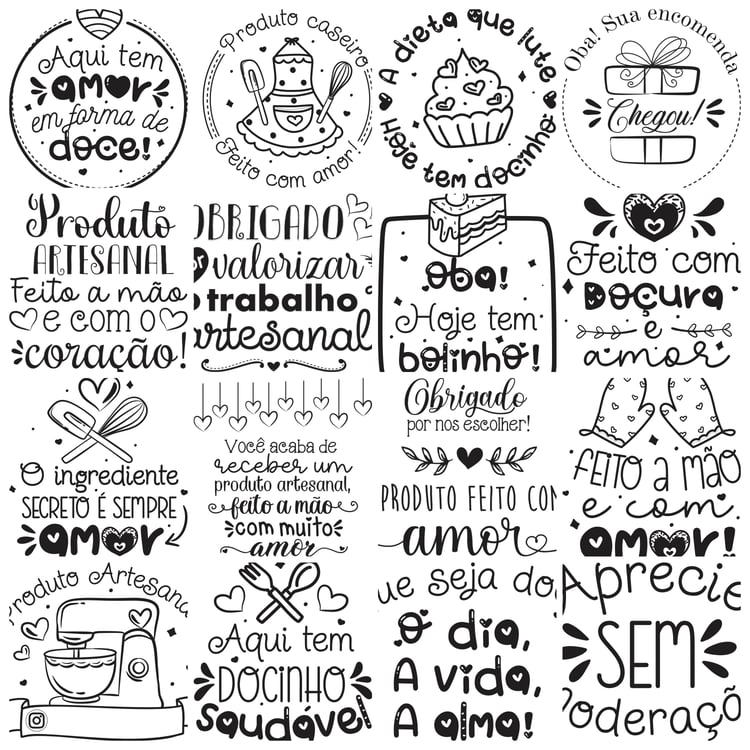 Aqui tem
amor
em forma de
doce!
Produto caseiro
Feito com amor!
A dieta que lute
Hoje tem docinho
Oba! Sua encomenda
Chegou!
Produto
ARTESANAL
Feito a mão
e com o
coração!
OBRIGADO
valorizar
trabalho
artesanal
Oba!
Hoje tem
bolinho!
Feito com
DOÇURA
e
amor
O ingrediente
SECRETO É SEMPRE
AMOR
Você acaba de
receber um
produto artesanal,
feito a mão
com muito
amor
Obrigado
por nos escolher!
PRODUTO FEITO COM
amor
FEITO A MÃO
e com
AMOR!
Produto Artesana
Aqui tem
DOCINHO
Saudável
ue seja do
O dia,
A vida,
A alma!
Aprecie
SEM
oderaçã